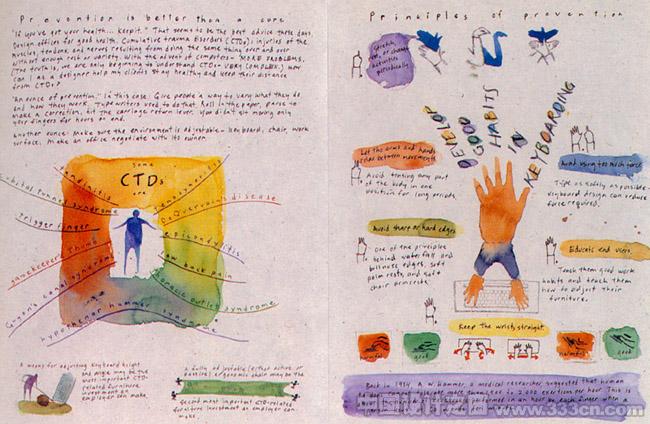 Prevention is better than a cure
"If you've got your health... keep it." That seems to be the best advice these days.
Design offices for good health. Cumulative trauma disorders (CTDs): injuries of the
muscles, tendons and nerves resulting from doing the same thing over and over
without enough rest or variety. With the advent of computers - MORE PROBLEMS.
(The truth is, we are only beginning to understand CTDs - VERY COMPLEX.) How
can I as a designer help my clients stay healthy and keep their distance
from CTDs?
"An ounce of prevention." In this case: Give people a way to vary what they do
and how they work. Typewriters used to do that. Roll in the paper, pause to
make a correction, hit the carriage return lever. You didn't sit moving only
your fingers for hours on end.
Another ounce: Make sure the environment is adjustable - keyboard, chair, work
surface. Make an office negotiate with its owner.
Some
CTDs
are
Tendinitis
Tenosynovitis
Cubital tunnel syndrome
DeQuervain's disease
Trigger finger
Epicondylitis
Gamekeeper's thumb
Low back pain
Guyon's canal syndrome
Thoracic outlet syndrome
Hypothenar hammer syndrome
A means for adjusting keyboard height
and angle may be the
most important CTD-
related furniture
investment an
employer can make.
A fully adjustable (either active or
passive) ergonomic chair may be the
second most important CTD-related
furniture investment an employer can
make.
Principles of prevention
Stretch,
rest, or change
activities
periodically
DEVELOP
GOOD
HABITS
IN
KEYBOARDING
Let the arms and hands
relax between movements
Avoid tensing any part
of the body in one
position for long periods.
Avoid using too much force
Type as softly as possible -
keyboard design can reduce
force required.
Avoid sharp or hard edges
One of the principles
behind waterfall and
bullnose edges, soft
palm rests, and soft
chair armrests.
Educate end users.
Teach them good work
habits and teach them
how to adjust their
furniture.
Keep the wrists straight
harmful
good
harmful
good
Back in 1934, A.W. Hammer, a medical researcher suggested that human
hands cannot tolerate more than
to 2,000 exertions per hour. This is
performed in an hour by each finger when a
person
www.333cn.com